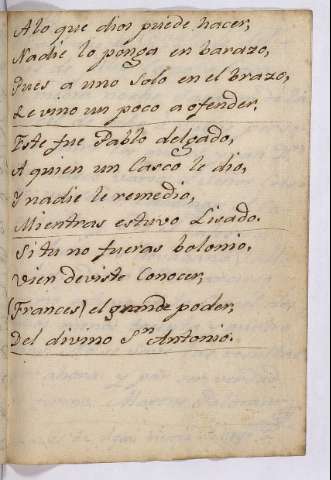 A lo que dios puede hacer,
Nadie lo ponga en barazo,
Pues a uno solo en el brazo,
Le vino un poco a ofender.
Este fue Pablo delgado,
A quien un Casco le dio,
Y nadie le remedio,
Mientras estuvo Lisado.
Si tu no fueras bolonio,
Vien deviste Conocer,
(Frances) el grande poder,
Del divino Sn Antonio.